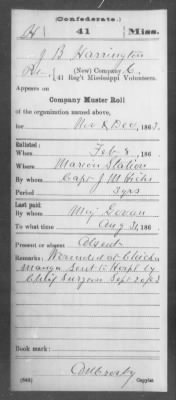 (Confederate.)
H 41 Miss.
J B Harrington
(New) Company C,
41 Reg't Mississippi Volunteers.
Appears on
Company Muster Roll
of the organization named above,
for Nov & Dec, 1863.
Enlisted:
When Feb 8, 186
Where Marion Station
By whom Capt J M Hicks
Period 3 yrs
Last paid:
By whom Maj Govan
To what time Aug 31, 186
Present or absent Absent
Remarks: Wounded at Chicka
mauga Sent to Hosp'l by
Chief Surgeon Sept 20, 63
Book mark:
(642) Copyist.